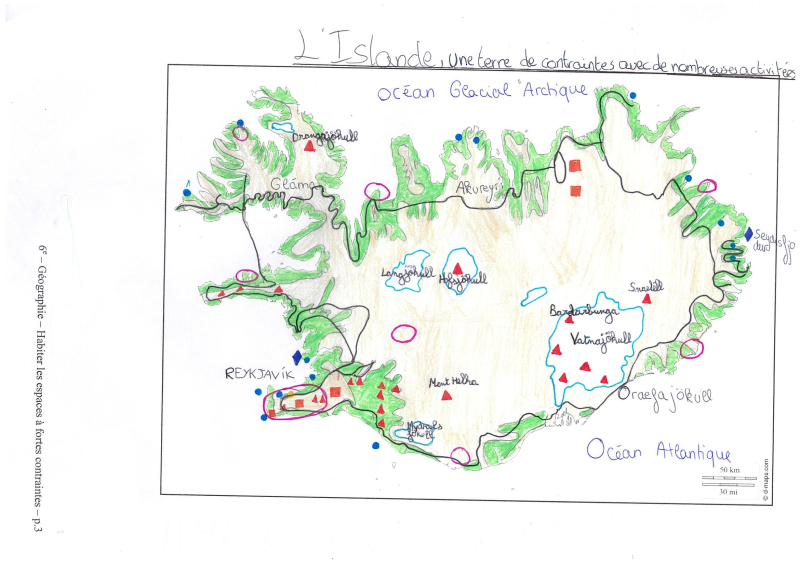 L'Islande, une terre de contraintes avec de nombreuses activitées
Océan Glacial Arctique
Drangajökull
Gláma
Akureyri
Langjökull
Hofsjökull
Snaefell
Bardarbunga
Vatnajökull
REYKJAVÍK
Mont Hekla
Oraefajökull
Océan Atlantique
50 km
30 mi
© d-maps.com
6e – Géographie – Habiter les espaces à fortes contraintes – p.3